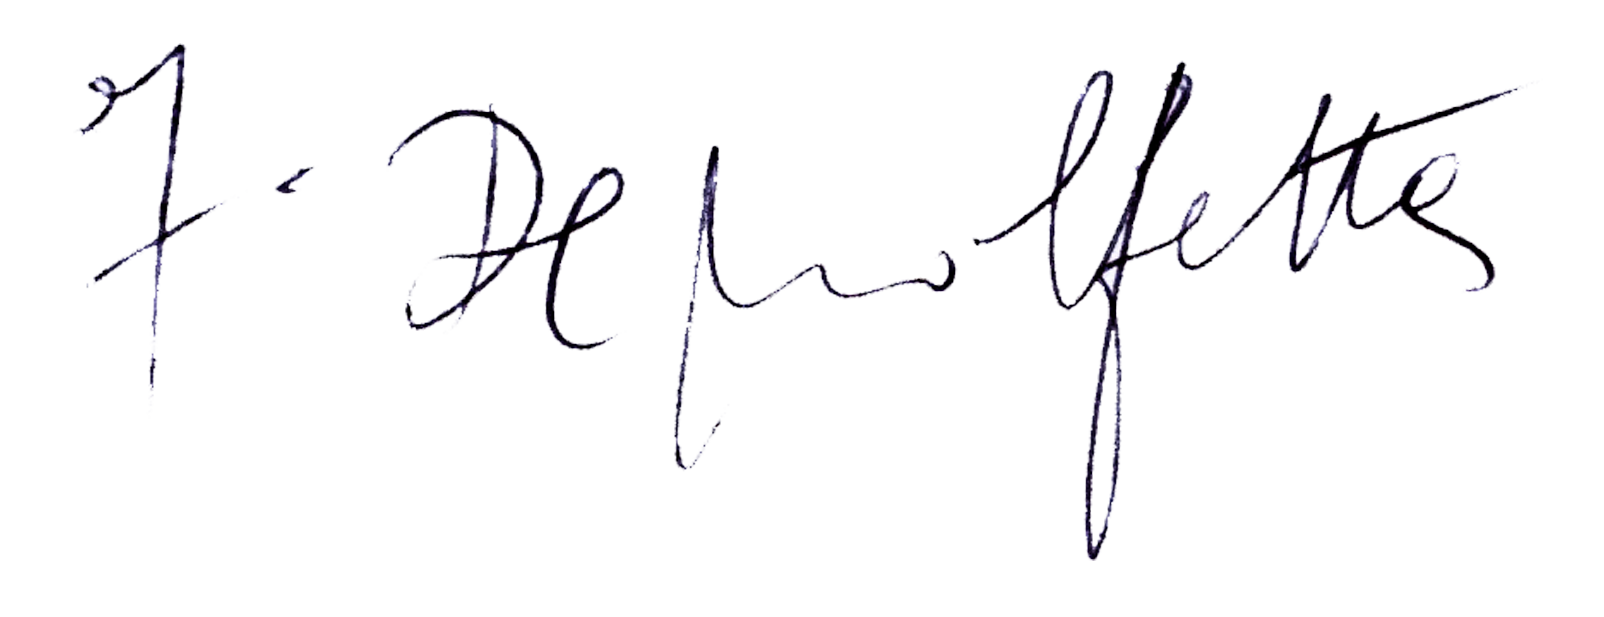 F. De molfetta